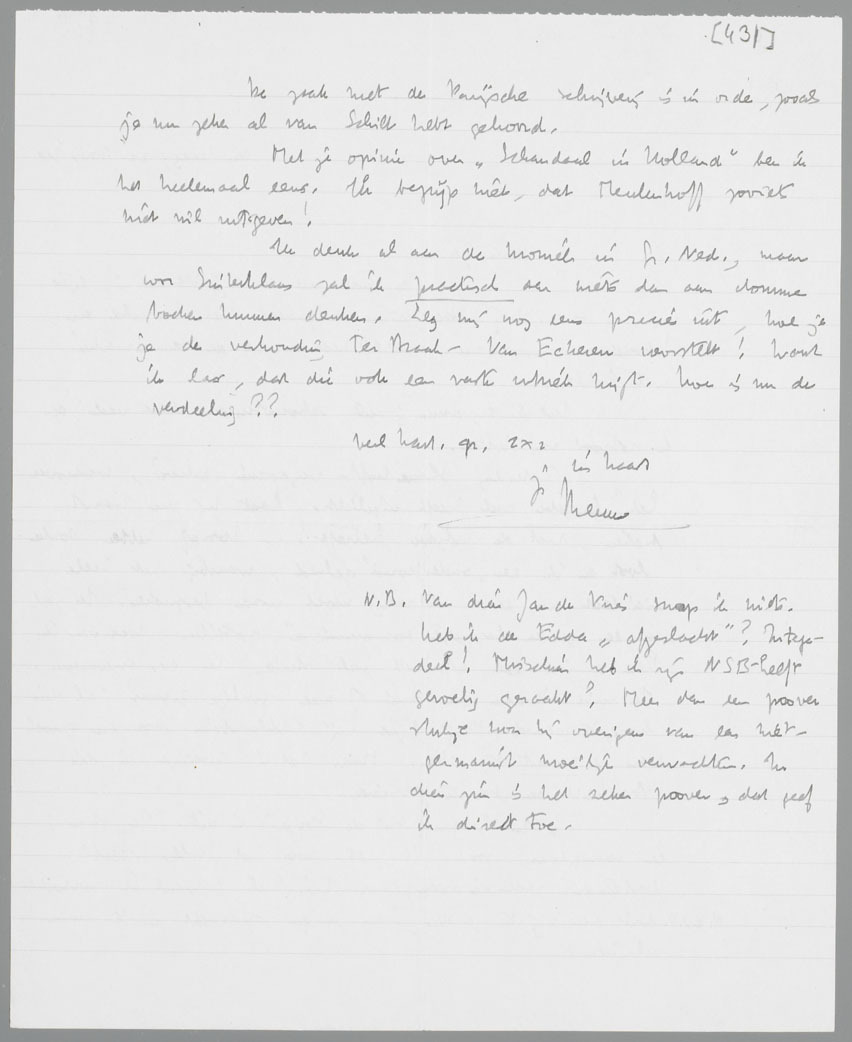 [431]
De zaak met de Parijsche schrijverij is in orde, zooals
je nu zeker al van Schilt hebt gehoord.
Met je opinie over „Schandaal in Holland" ben ik
het heelemaal eens. Ik begrijp niet, dat Meulenhoff zooiets
niet wil uitgeven!
Ik denk al aan de kroniek in Gr. Ned., maar
voor Sinterklaas zal ik practisch aan niets dan aan domme
boeken kunnen denken. Zeg mij nog eens precies uit, hoe je
je de verhouding Ter Braak - Van Eckeren voorstelt! Want
ik las, dat die ook een vaste rubriek krijgt. Hoe is nu de
verdeeling??
veel hart. gr. 2 x 2
in haast
je Menno
N.B. Van dien Jan de Vries snap ik niets.
Heb ik de Edda „afgeslacht"? Integen-
deel! Misschien heb ik zijn NSB-heeft
gevoelig geraakt? Meer dan een poover
stukje kon hij overigens van een niet-
germanist moeilijk verwachten. In
dien zin is het zeker poover, dat geef
ik direct toe.